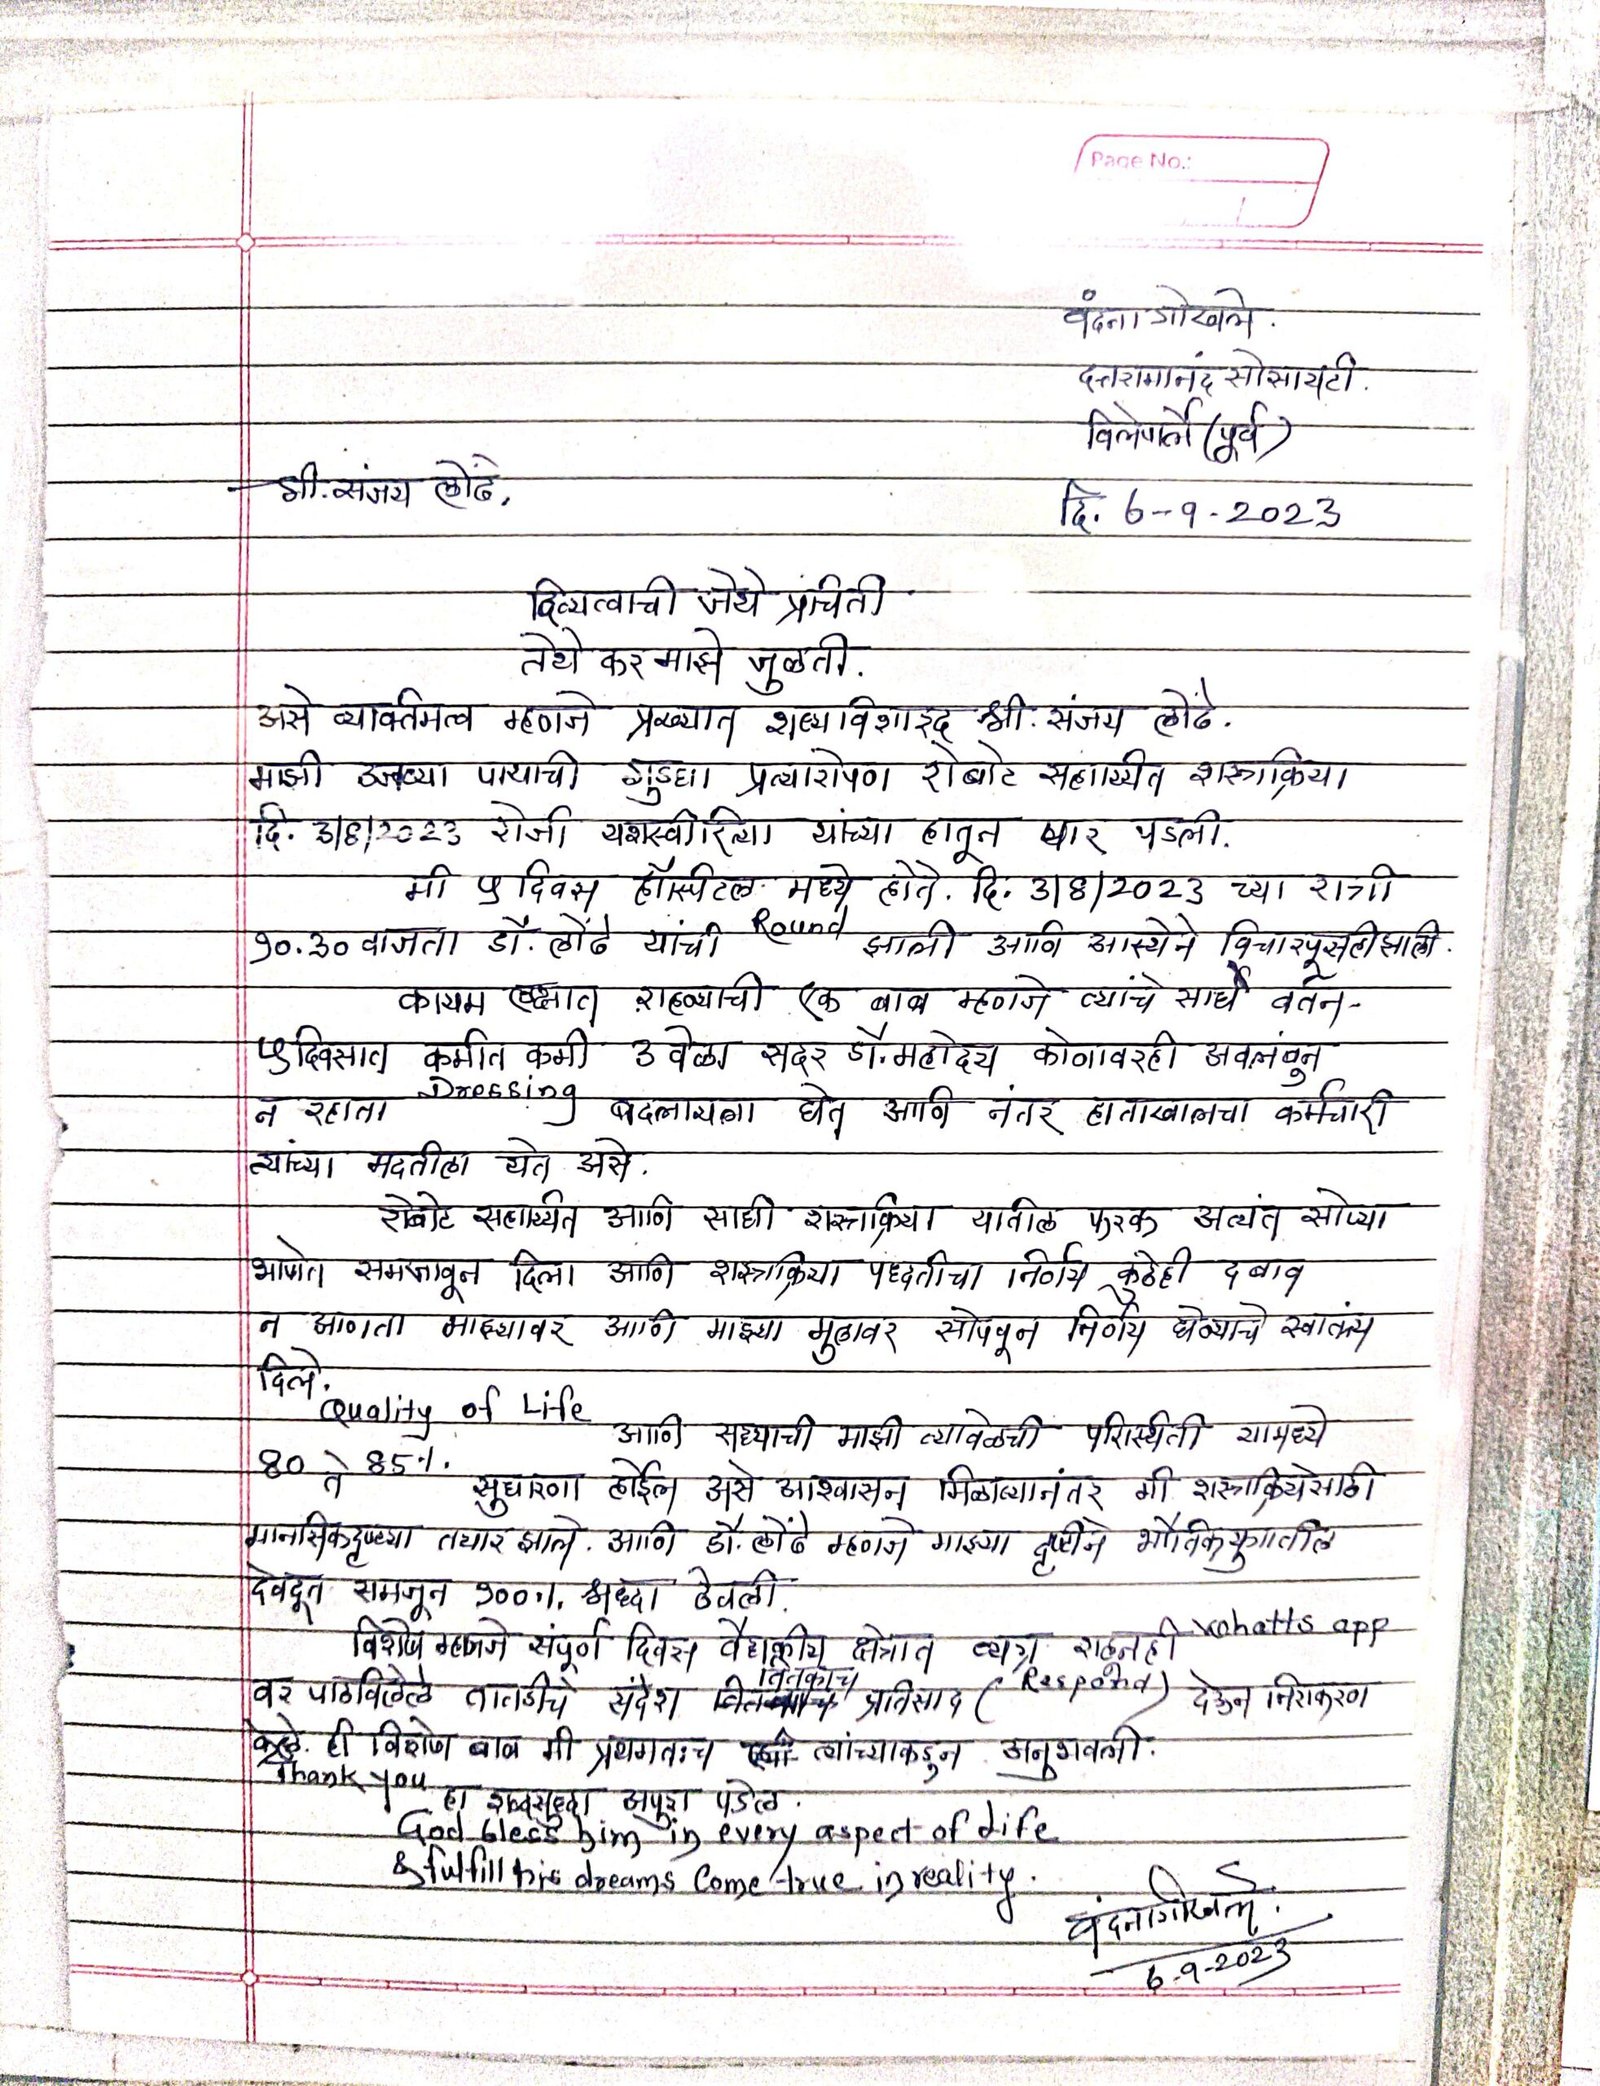 Page No.:
वंदना गोखले.
दत्तरामानंद सोसायटी.
विलेपार्ले (पूर्व)
श्री. संजय लोंढे,
दि. 6-9-2023
दिव्यत्वाची जेथे प्रचिती
तेथे कर माझे जुळती.
असे व्यक्तिमत्व म्हणजे प्रख्यात शल्यविशारद श्री. संजय लोंढे.
माझी उजव्या पायाची गुडघा प्रत्यारोपण रोबोट सहाय्यीत शस्त्रक्रिया
दि. 3/8/2023 रोजी यशस्वीरित्या यांच्या हातून पार पडली.
मी ५ दिवस हॉस्पीटल मध्ये होते. दि. 3/8/2023 च्या रात्री
१०.३० वाजता डॉ. लोंढे यांची Round झाली आणि आस्थेने विचारपूसही झाली.
कायम लक्षात राहण्याची एक बाब म्हणजे त्यांचे साधे वर्तन-
५ दिवसात कमीत कमी ३ वेळा सदर डॉ. महोदय कोणावरही अवलंबुन
न रहाता Dressing बदलायला येत आणि नंतर हाताखालचा कर्मचारी
त्यांच्या मदतीला येत असे.
रोबोट सहाय्यीत आणि साधी शस्त्रक्रिया यातील फरक अत्यंत सोप्या
भाषेत समजावून दिला आणि शस्त्रक्रिया पध्दतीचा निर्णय कुठेही दबाव
न आणता माझ्यावर आणि माझ्या मुलावर सोपवून निर्णय घेण्याचे स्वातंत्र्य
दिले.
Quality of Life आणि सध्याची माझी त्यावेळची परिस्थिती यामध्ये
80 ते 85%. सुधारणा होईल असे आश्वासन मिळाल्यानंतर मी शस्त्रक्रियेसाठी
मानसिकदृष्ट्या तयार झाले. आणि डॉ. लोंढे म्हणजे माझ्या दृष्टीने भौतिक युगातील
देवदूत समजून १००%. श्रध्दा ठेवली.
विशेष म्हणजे संपूर्ण दिवस वैद्यकीय क्षेत्रात व्यग्र राहूनही whatts app
वर पाठविलेले तातडीचे संदेश तितकाच प्रतिसाद (Respond) देऊन निराकरण
केले. ही विशेष बाब मी प्रथमतःच त्यांच्याकडुन अनुभवली.
Thank you हा शब्दसुध्दा अपुरा पडेल.
God bless him in every aspect of Life
& fulfill his dreams Come true in reality.
वंदना गोखले.
6-9-2023